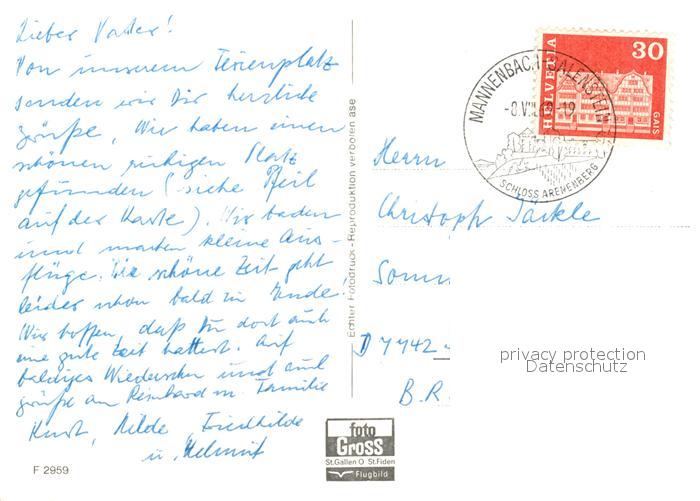 Lieber Vater!
Von unserem Ferienplatz
senden wir Dir herzliche
Grüße. Wir haben einen
schönen ruhigen Platz
gefunden (siehe Pfeil
auf der Karte). Wir baden
und machen kleine Aus-
flüge. Die schöne Zeit geht
leider schon bald zu Ende!
Wir hoffen, daß Du dort auch
eine gute Zeit hattest. Auf
baldiges Wiedersehn und auch
grüße an Reinhard m. Familie
Kurt, Hilde, Friedhilde
u. Helmut
F 2959
Echter Fotodruck - Reproduktion verboten
foto
Gross
St.Gallen O St.Fiden
Flugbild
HELVETIA
30
GAIS
MANNENBACH-SALENSTEIN
SCHLOSS ARENENBERG
Herrn
Christoph Jäckle
Somm
D 7742
B.R.
privacy protection
Datenschutz